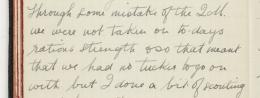 through some mistake of the 2.M.
we were not taken on to days
rations strength so that meant
that we had no tucker to go on
with but I done a bit of scouting